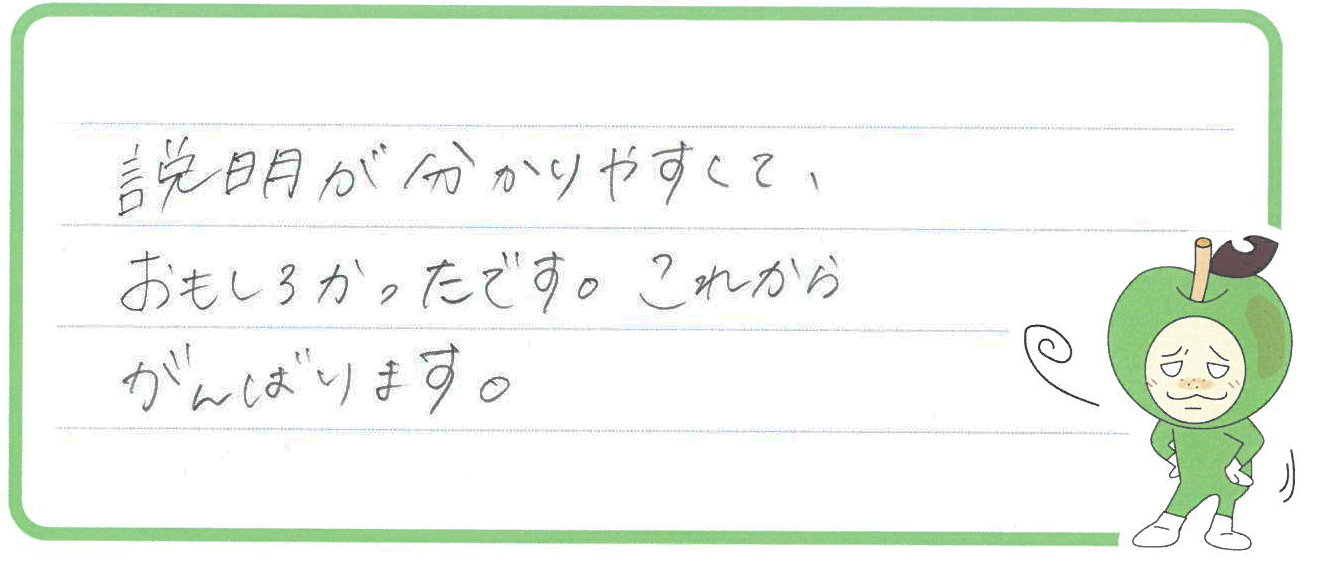 説明が分かりやすくて、
おもしろかったです。これから
がんばります。